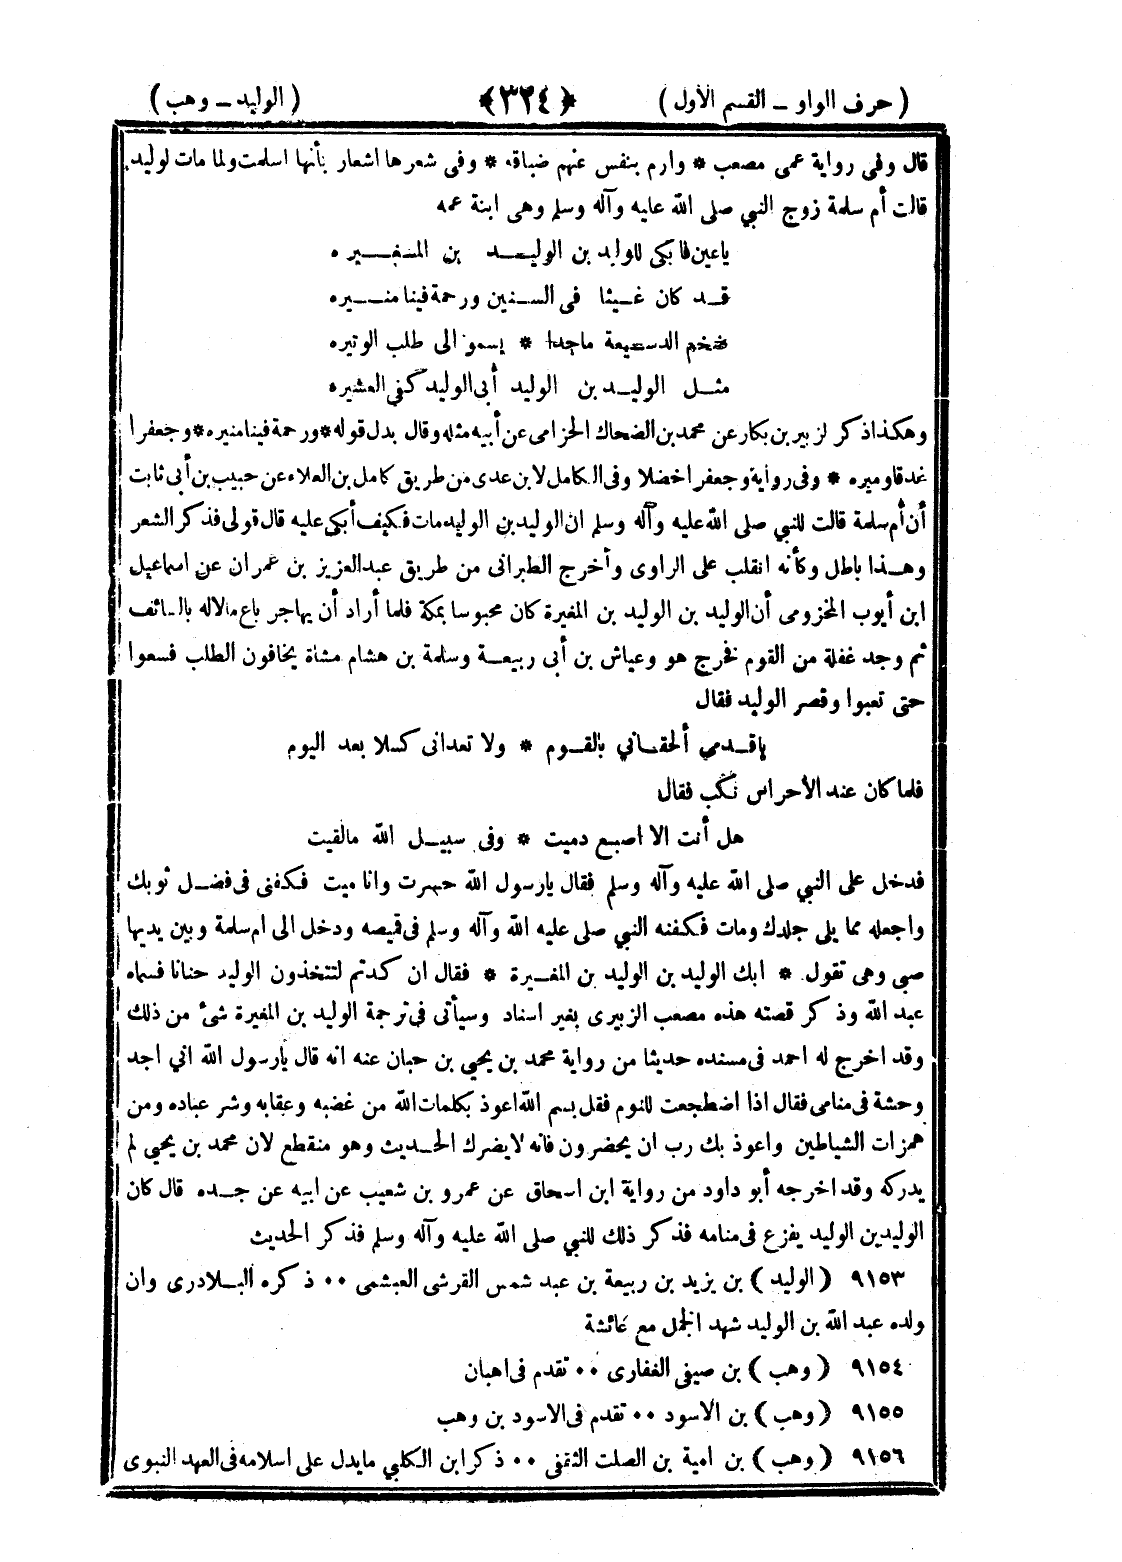 ( حرف الواو ــ القسم الأول ) ﴿ ٣٢٤ ﴾ ( الوليد ــ وهب )
قال وفى رواية عمى مصعب * وارم بنفس عنهم ضباقه * وفى شعرها اشعار بأنها اسلمت ولما مات لوليد
قالت أم سلمة زوج النبي صلى الله عليه وآله وسلم وهى ابنة عمه
ياعين فابكى للوليد بن الوليــد بن المــغيــره
قــد كان غــيثا فى الســنين ورحمة فينا منــيره
ضخم الدسيعة ماجدا * يسمو الى طلب الوتيره
مثــل الوليــد بن الوليد أبى الوليد كفى العشيره
وهكذا ذكر لزبير بن بكار عن محمد بن الضحاك الحزامى عن أبيه مثله وقال بدل قوله * ورحمة فينا منيره * وجعفرا
غدقا وميره * وفى رواية وجعفرا خضلا وفى الكامل لابن عدى من طريق كامل بن العلاء عن حبيب بن أبى ثابت
أن أم سلمة قالت للنبي صلى الله عليه وآله وسلم ان الوليد بن الوليد مات فكيف أبكى عليه قال قولى فذكر الشعر
وهــذا باطل وكأنه انقلب على الراوى وأخرج الطبرانى من طريق عبد العزيز بن عمران عن اسماعيل
ابن أيوب المخزومى أن الوليد بن الوليد بن المغيرة كان محبوسا بمكة فلما أراد أن يهاجر باع مالا له بالطائف
ثم وجد غفلة من القوم فخرج هو وعياش بن أبى ربيعــة وسلمة بن هشام مشاة يخافون الطلب فسعوا
حتى تعبوا وقصر الوليد فقال
يا قــدمي ألحقــاني بالقــوم * ولا تعدانى كسلا بعد اليوم
فلما كان عند الأحراس نكب فقال
هل أنت الا اصبع دميت * وفى سبيــل الله مالقيت
فدخل على النبي صلى الله عليه وآله وسلم فقال يارسول الله حسرت وانا ميت فكفنى فى فضــل ثوبك
واجعله مما يلى جلدك ومات فكفنه النبي صلى عليه الله وآله وسلم فى قميصه ودخل الى ام سلمة وبين يديها
صبى وهى تقول * ابك الوليد بن الوليد بن المغــيرة * فقال ان كدتم لتتخذون الوليد حنانا فسماه
عبد الله وذكر قصته هذه مصعب الزبيرى بغير اسناد وسيأتى فى ترجمة الوليد بن المغيرة شئ من ذلك
وقد اخرج له احمد فى مسنده حديثا من رواية محمد بن يحيي بن حبان عنه انه قال يارسول الله اني اجد
وحشة فى منامى فقال اذا اضطجعت للنوم فقل بسم الله اعوذ بكلمات الله من غضبه وعقابه وشر عباده ومن
همزات الشياطين واعوذ بك رب ان يحضرون فانه لايضرك الحــديث وهو منقطع لان محمد بن يحيي لم
يدركه وقد اخرجه أبو داود من رواية ابن اسحاق عن عمرو بن شعيب عن ابيه عن جــده قال كان
الوليد بن الوليد يفزع فى منامه فذكر ذلك للنبي صلى الله عليه وآله وسلم فذكر الحديث
٩١٥٣ ( الوليد ) بن يزيد بن ربيعة بن عبد شمس القرشى العبشمى ٠٠ ذكره البــلادرى وان
ولده عبد الله بن الوليد شهد الجمل مع عائشة
٩١٥٤ ( وهب ) بن صيفى الغفارى ٠٠ تقدم فى اهبان
٩١٥٥ ( وهب ) بن الاسود ٠٠ تقدم فى الاسود بن وهب
٩١٥٦ ( وهب ) بن امية بن الصلت الثقفى ٠٠ ذكر ابن الكلبي مايدل على اسلامه فى العهد النبوى